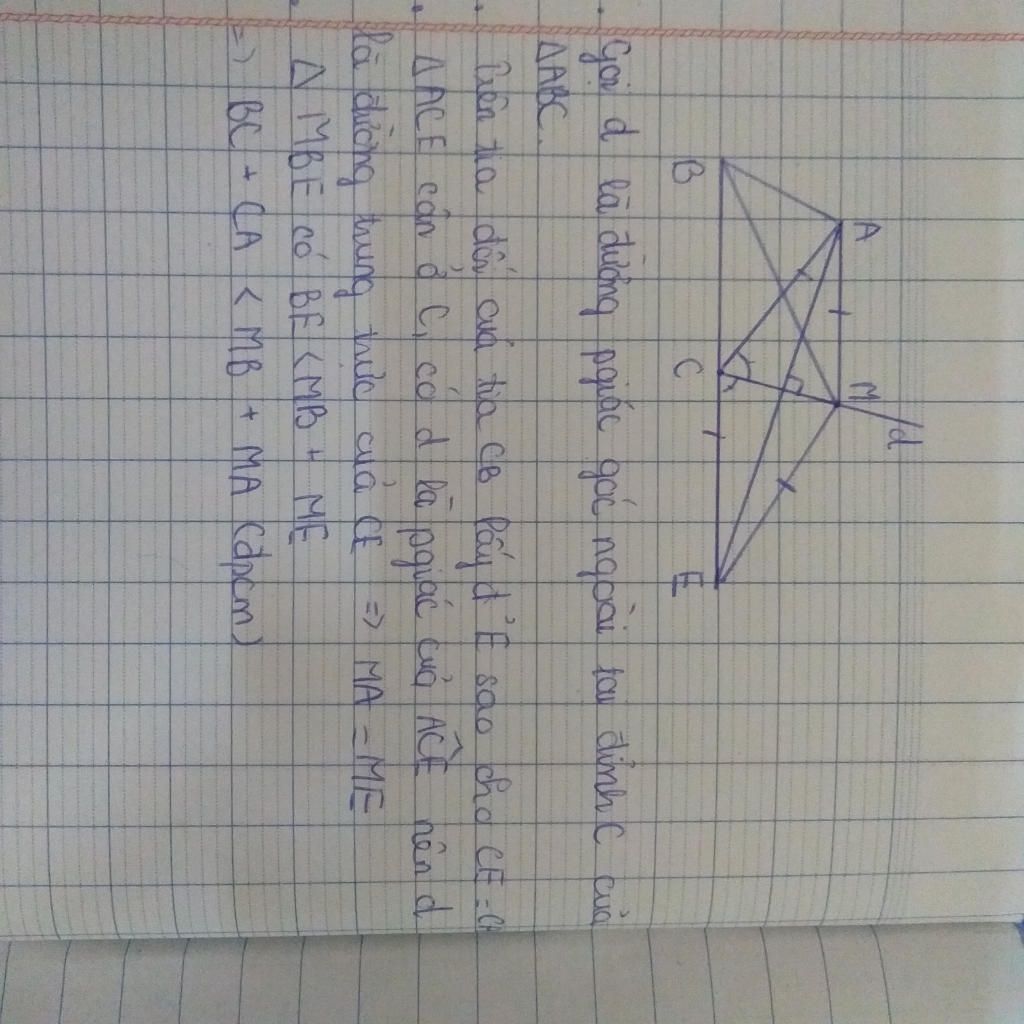 A
M
d
B
C
E
Gọi d là đường pgiác góc ngoài tại đỉnh C của
ΔABC.
Trên tia đối của tia CB lấy đ' E sao cho CE =
ΔACE cân ở C, có d là pgiác của ACE nên d
là đường trung trực của CE => MA = ME
Δ MBE có BE < MB + ME
=> BC + CA < MB + MA (đpcm)